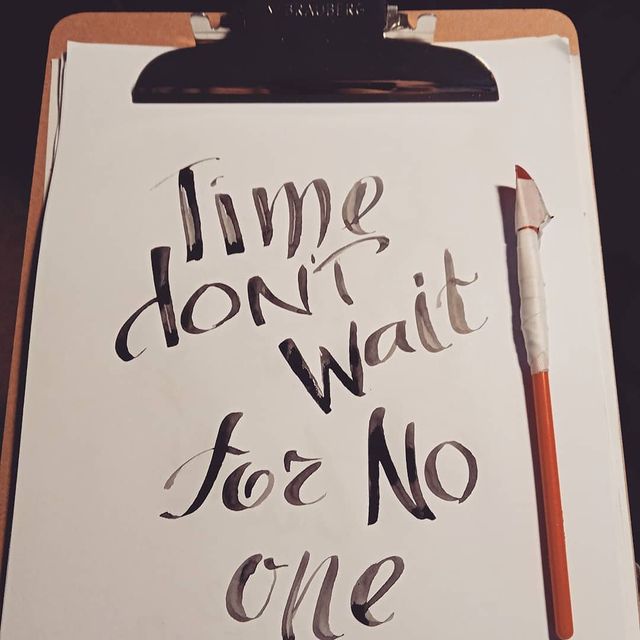 BRAUBERG
Time
don't
Wait
for No
one